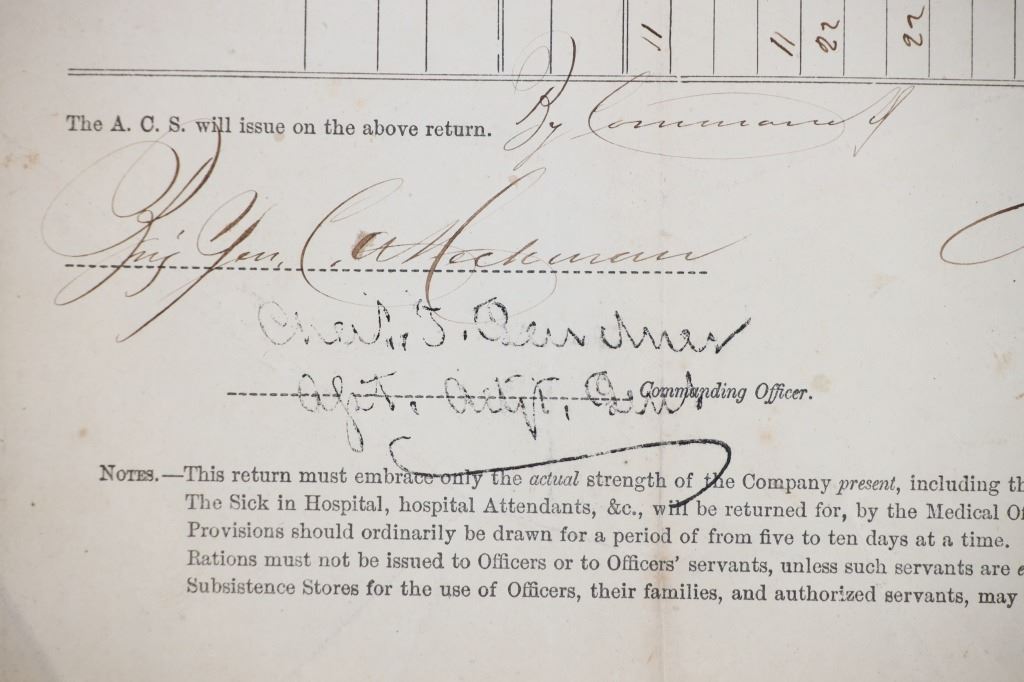 11 11 22 22
The A. C. S. will issue on the above return. By Command of
Brig Gen. C. A. Heckman
Chas. T. Gardner
Asst. Adjt. Genl
Commanding Officer.
NOTES.—This return must embrace only the actual strength of the Company present, including th
The Sick in Hospital, hospital Attendants, &c., will be returned for, by the Medical Of
Provisions should ordinarily be drawn for a period of from five to ten days at a time.
Rations must not be issued to Officers or to Officers' servants, unless such servants are e
Subsistence Stores for the use of Officers, their families, and authorized servants, may